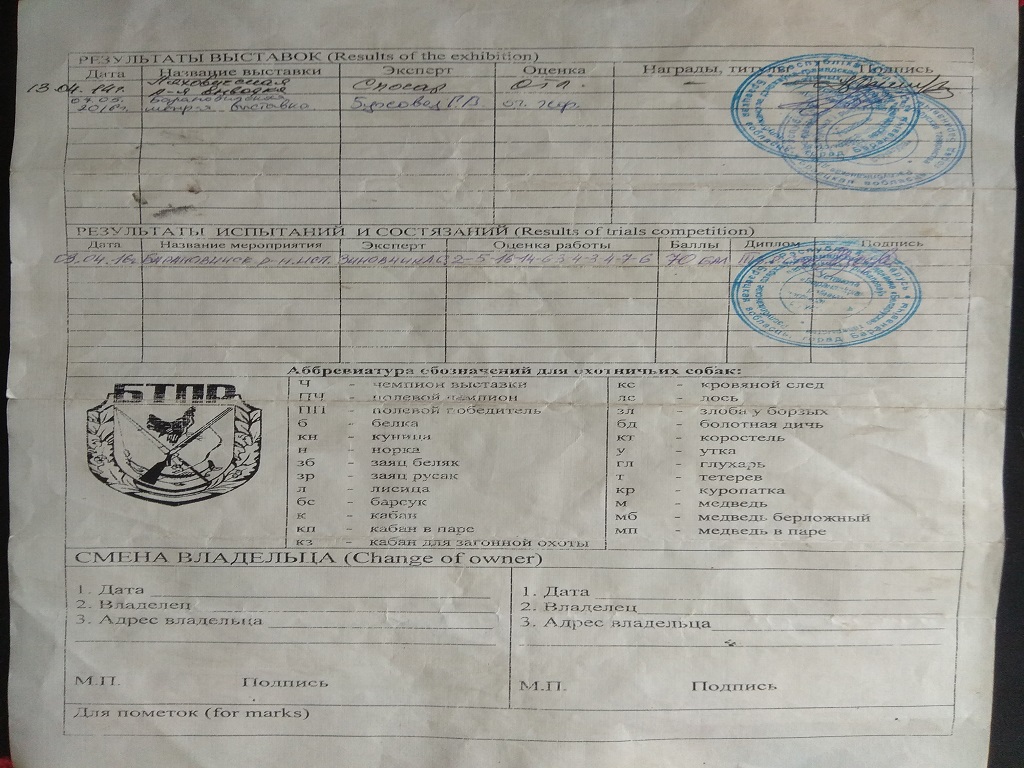 РЕЗУЛЬТАТЫ ВЫСТАВОК (Results of the exhibition)
Дата Название выставки Эксперт Оценка Награды, титулы Подпись
13.04.14г. Ляховичская р-я выводка Отл. -
07.05.2016г. Барановичская выставка от. хор.
РЕЗУЛЬТАТЫ ИСПЫТАНИЙ И СОСТЯЗАНИЙ (Results of trials competition)
Дата Название мероприятия Эксперт Оценка работы Баллы Диплом Подпись
03.04.16г. 2-5-16-14-6-3-4-3-4-7-6 70 БАЛ III
Аббревиатура обозначений для охотничьих собак:
БТПР
Ч - чемпион выставки
ПЧ - полевой чемпион
ПП - полевой победитель
б - белка
кн - куница
н - норка
зб - заяц беляк
зр - заяц русак
л - лисица
бс - барсук
к - кабан
кп - кабан в паре
кз - кабан для загонной охоты
кс - кровяной след
лс - лось
зл - злоба у борзых
бд - болотная дичь
кт - коростель
у - утка
гл - глухарь
т - тетерев
кр - куропатка
м - медведь
мб - медведь берложный
мп - медведь в паре
СМЕНА ВЛАДЕЛЬЦА (Change of owner)
1. Дата
2. Владелец
3. Адрес владельца
М.П. Подпись
1. Дата
2. Владелец
3. Адрес владельца
М.П. Подпись
Для пометок (for marks)